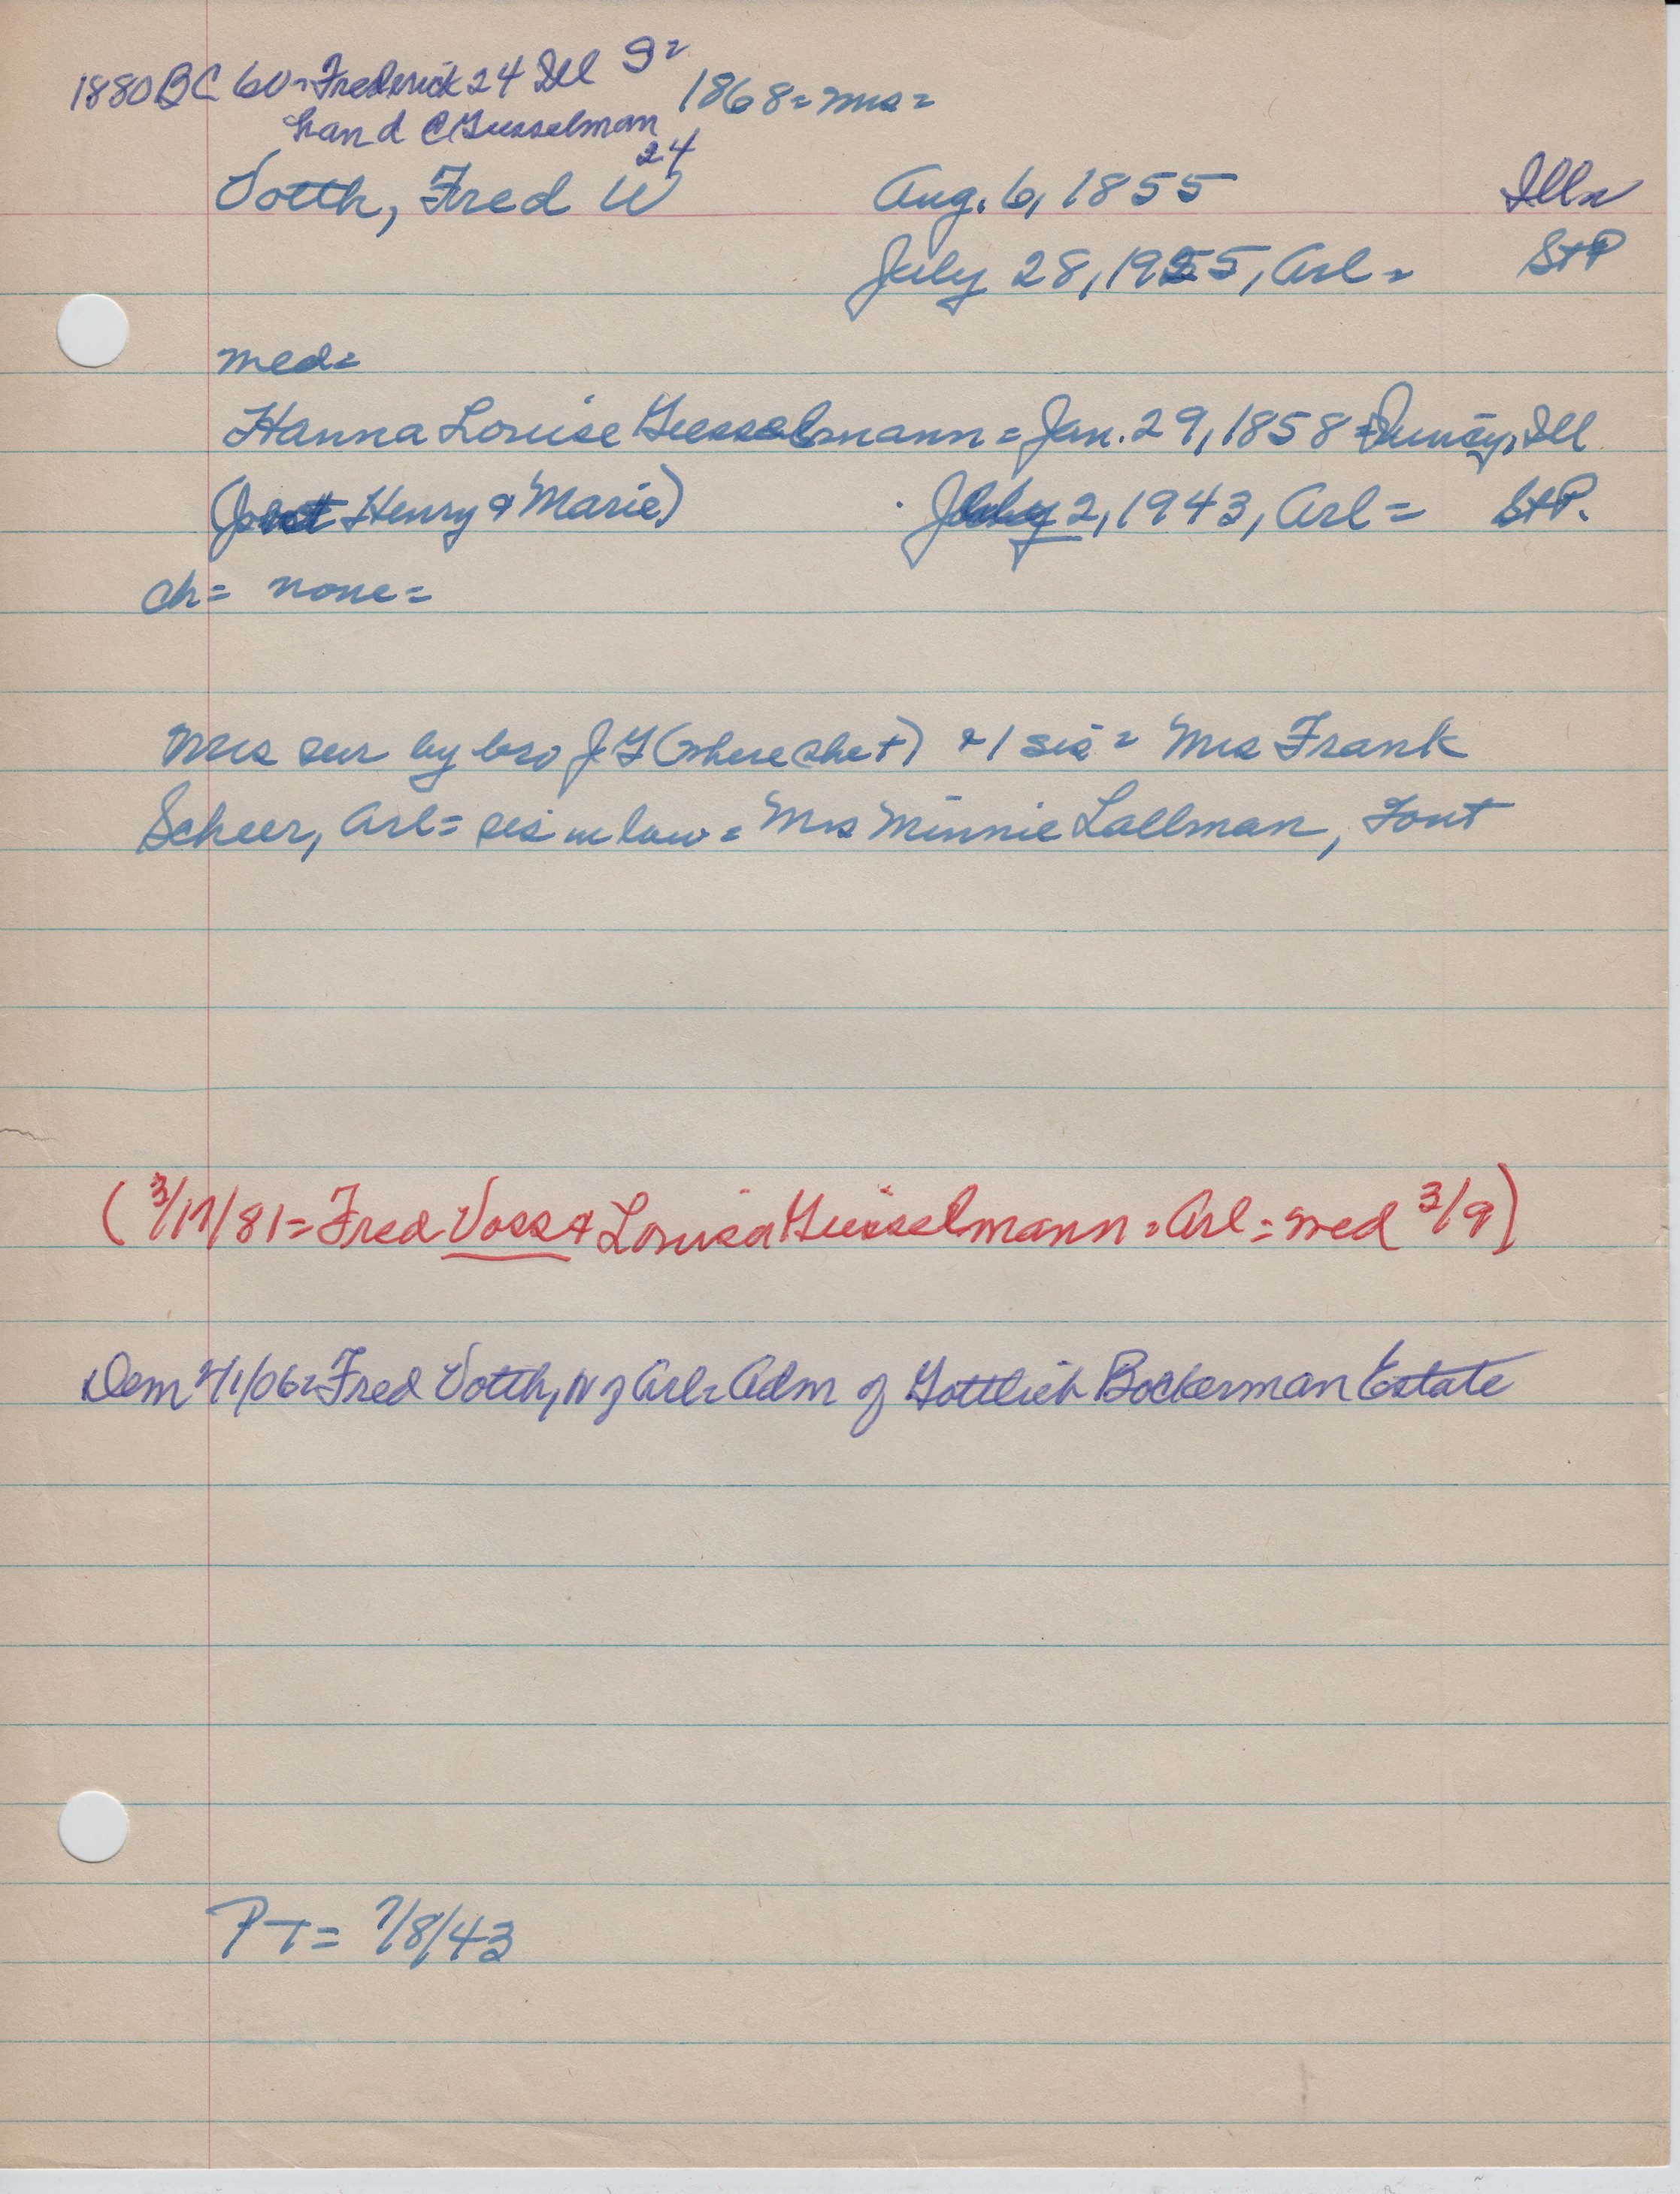 1880 BC 60= Frederick 24 Ill S=
hand C Giesselman 1868= Mrs=
24
Votth, Fred W Aug. 6, 1855 Ills
July 28, 1925, Arl= StP
med=
Hanna Louise Giesselmann = Jan. 29, 1858 = Quincy, Ill
(Jobst Henry & Marie) July 2, 1943, Arl= StP.
ch= none=
Mrs sur by bro J G (where she +) & 1 sis = Mrs Frank
Scheer, Arl= sis in law = Mrs Minnie Lallman, Font
(3/17/81= Fred Voss & Louisa Giesselmann = Arl = med 3/9)
Dem /1/06= Fred Votth, N of Arl= Adm of Gottlieb Bockerman Estate
PT= 7/8/43